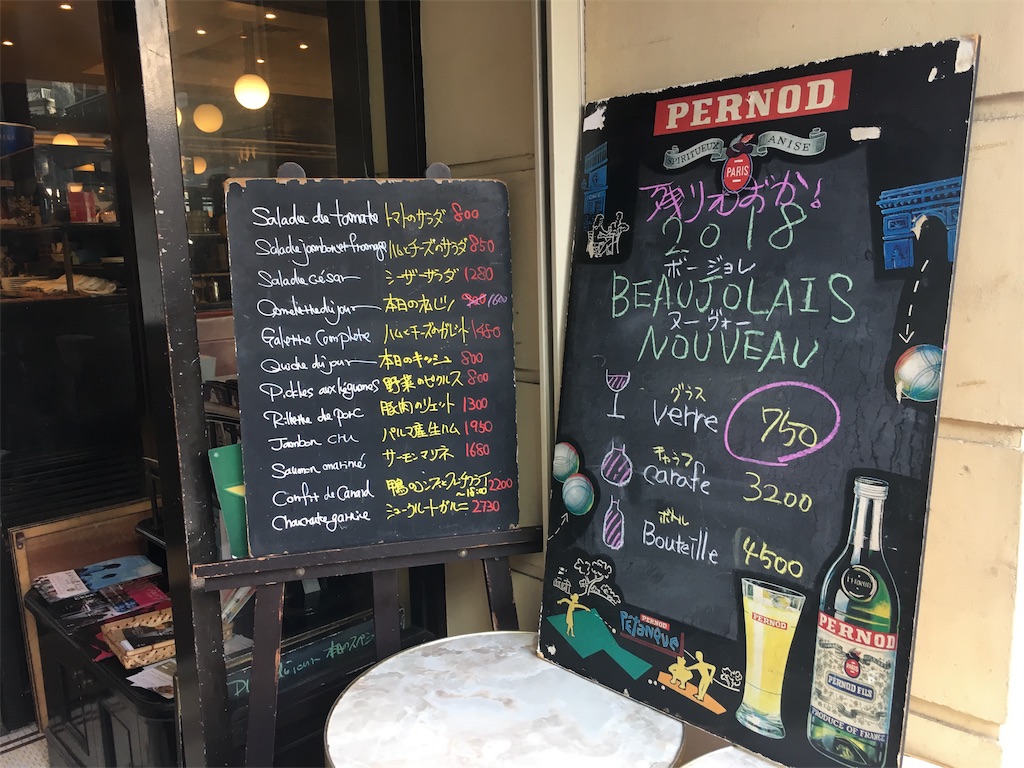 Salade de tomate トマトのサラダ 800
Salade jambon et fromage ハムとチーズのサラダ 850
Salade césar シーザーサラダ 1280
Omelette du jour 本日のオムレツ 1600
Galette Complete ハムとチーズのガレット 1450
Quiche du jour 本日のキッシュ 800
Pickles aux légumes 野菜のピクルス 800
Rillette de Porc 豚肉のリエット 1300
Jambon cru パルマ産生ハム 1950
Saumon mariné サーモンマリネ 1680
Confit de Canard 鴨のコンフィとフレンチフライ 2200
Choucroute garnie シュークルートガルニ 2730
本日のスペシ
PERNOD
SPIRITUEUX ANISE
PARIS
残りわずか!
2018
ボージョレ
BEAUJOLAIS
ヌーヴォー
NOUVEAU
グラス
verre 750
キャラフ
carafe 3200
ボトル
Bouteille 4500
PERNOD
Pétanque
PERNOD
PERNOD
PERNOD FILS
PRODUCE OF FRANCE